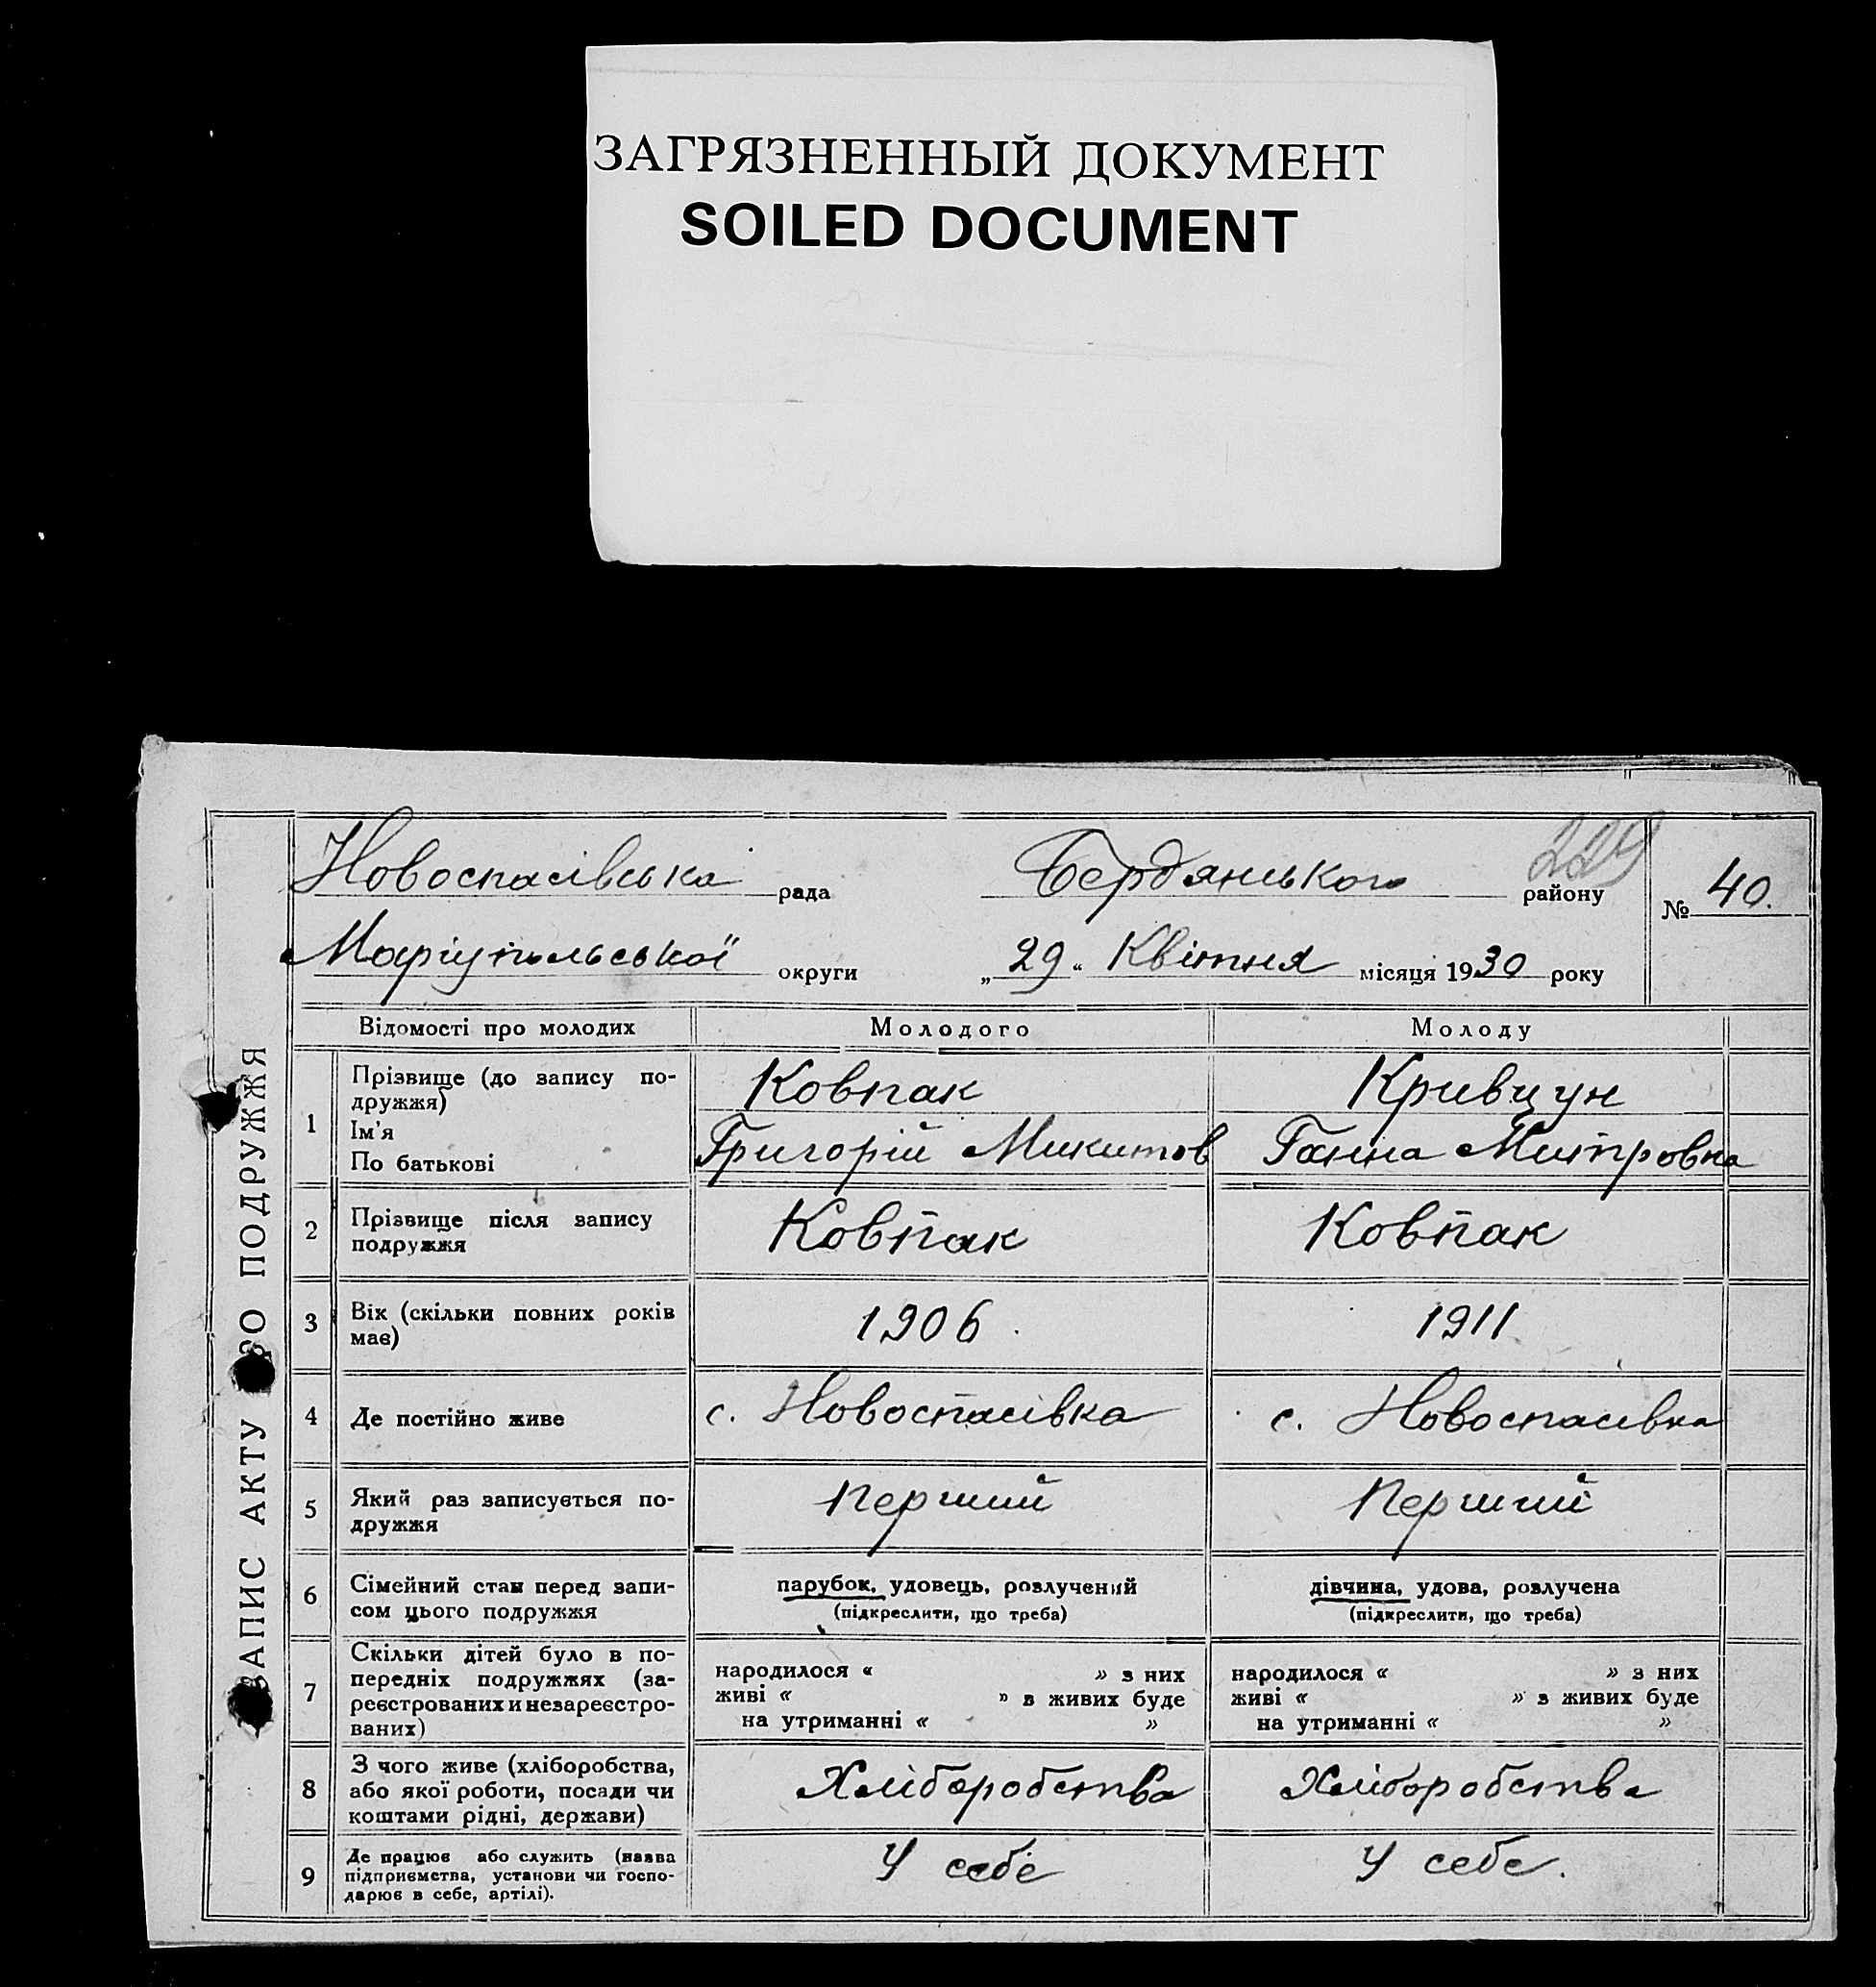 ЗАГРЯЗНЕННЫЙ ДОКУМЕНТ
SOILED DOCUMENT
229
Новоспасівська рада Бердянського району № 40.
Маріупольської округи „29“ Квітня місяця 1930 року
ЗАПИС АКТУ ПРО ПОДРУЖЖЯ
Відомості про молодих Молодого Молоду
1 Прізвище (до запису по-
дружжя) Ковпак Кривцун
Ім'я
По батькові Григорій Микитов Ганна Митровна
2 Прізвище після запису
подружжя Ковпак Ковпак
3 Вік (скільки повних років
має) 1906. 1911
4 Де постійно живе с. Новоспасівка с. Новоспасівка
5 Який раз записується по-
дружжя Перший Перший
6 Сімейний стан перед запи-
сом цього подружжя
парубок, удовець, розлучений дівчина, удова, розлучена
(підкреслити, що треба) (підкреслити, що треба)
7 Скільки дітей було в по-
передніх подружжях (за-
реєстрованих и незареєстро-
ваних)
народилося « » з них народилося « » з них
живі « » з живих буде живі « » з живих буде
на утриманні « » на утриманні « »
8 З чого живе (хліборобства,
або якої роботи, посади чи
коштами рідні, держави) Хліборобства Хліборобства
9 Де працює або служить (назва
підприємства, установи чи госпо-
дарює в себе, артілі). У себе У себе.